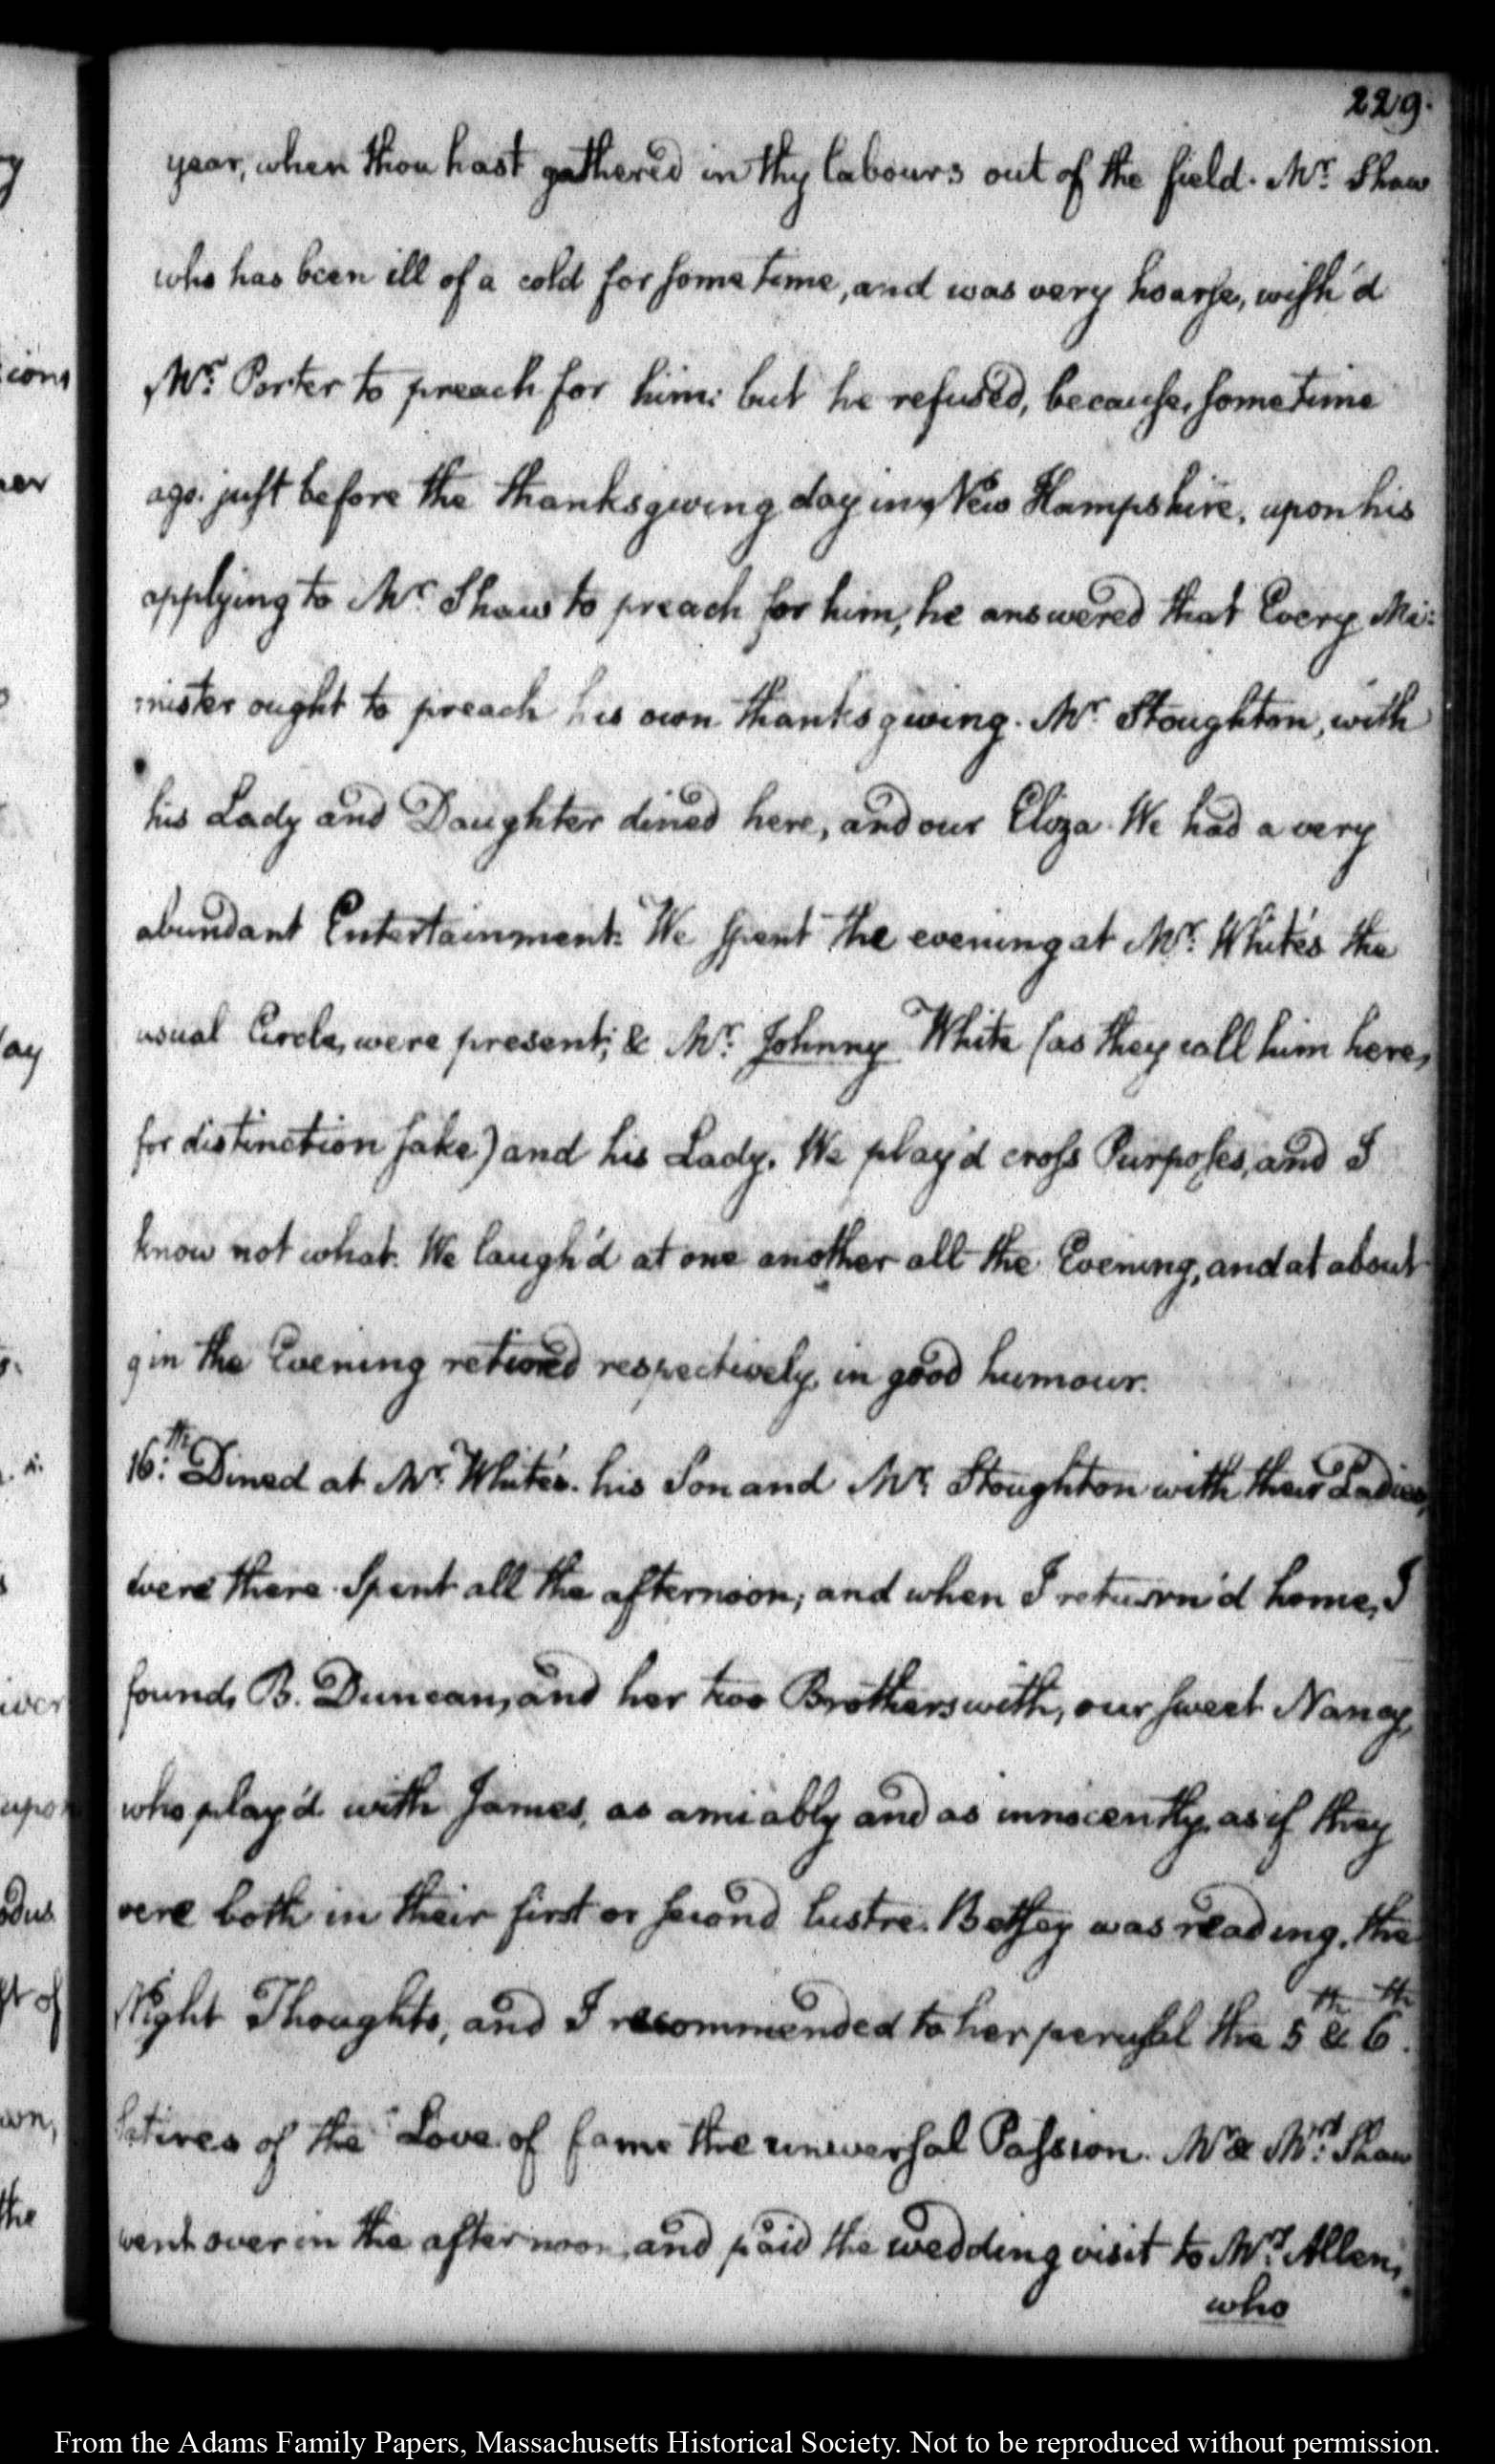 229.
year, when thou hast gathered in thy labours out of the field. Mr. Shaw
who has been ill of a cold for some time, and was very hoarse, wish'd
Mr. Porter to preach for him: but he refused, because, sometime
ago. just before the thanksgiving day in New Hampshire, upon his
applying to Mr. Shaw to preach for him, he answered that Every Mi:
nister ought to preach his own thanksgiving. Mr. Stoughton, with
his Lady and Daughter dined here, and our Eliza. We had a very
abundant Entertainment. We spent the evening at Mr. White's the
usual Circle, were present; & Mr. Johnny White (as they call him here,
for distinction sake) and his Lady. We play'd cross Purposes, and I
know not what. We laugh'd at one another all the Evening, and at about
9 in the Evening retired respectively, in good humour.
16th. Dined at Mr. White's. his Son and Mr. Stoughton with their Ladies,
were there. Spent all the afternoon; and when I return'd home, I
found, B. Duncan, and her two Brothers with, our sweet Nancy,
who play'd with James, as amiably and as innocently, as if they
were both in their first or second lustre. Betsey was reading, the
Night Thoughts, and I recommended to her perusal the 5th & 6th.
satires of the Love of fame the universal Passion. Mr. & Mrs. Shaw
went over in the afternoon, and paid the wedding visit to Mrs. Allen,
who
From the Adams Family Papers, Massachusetts Historical Society. Not to be reproduced without permission.